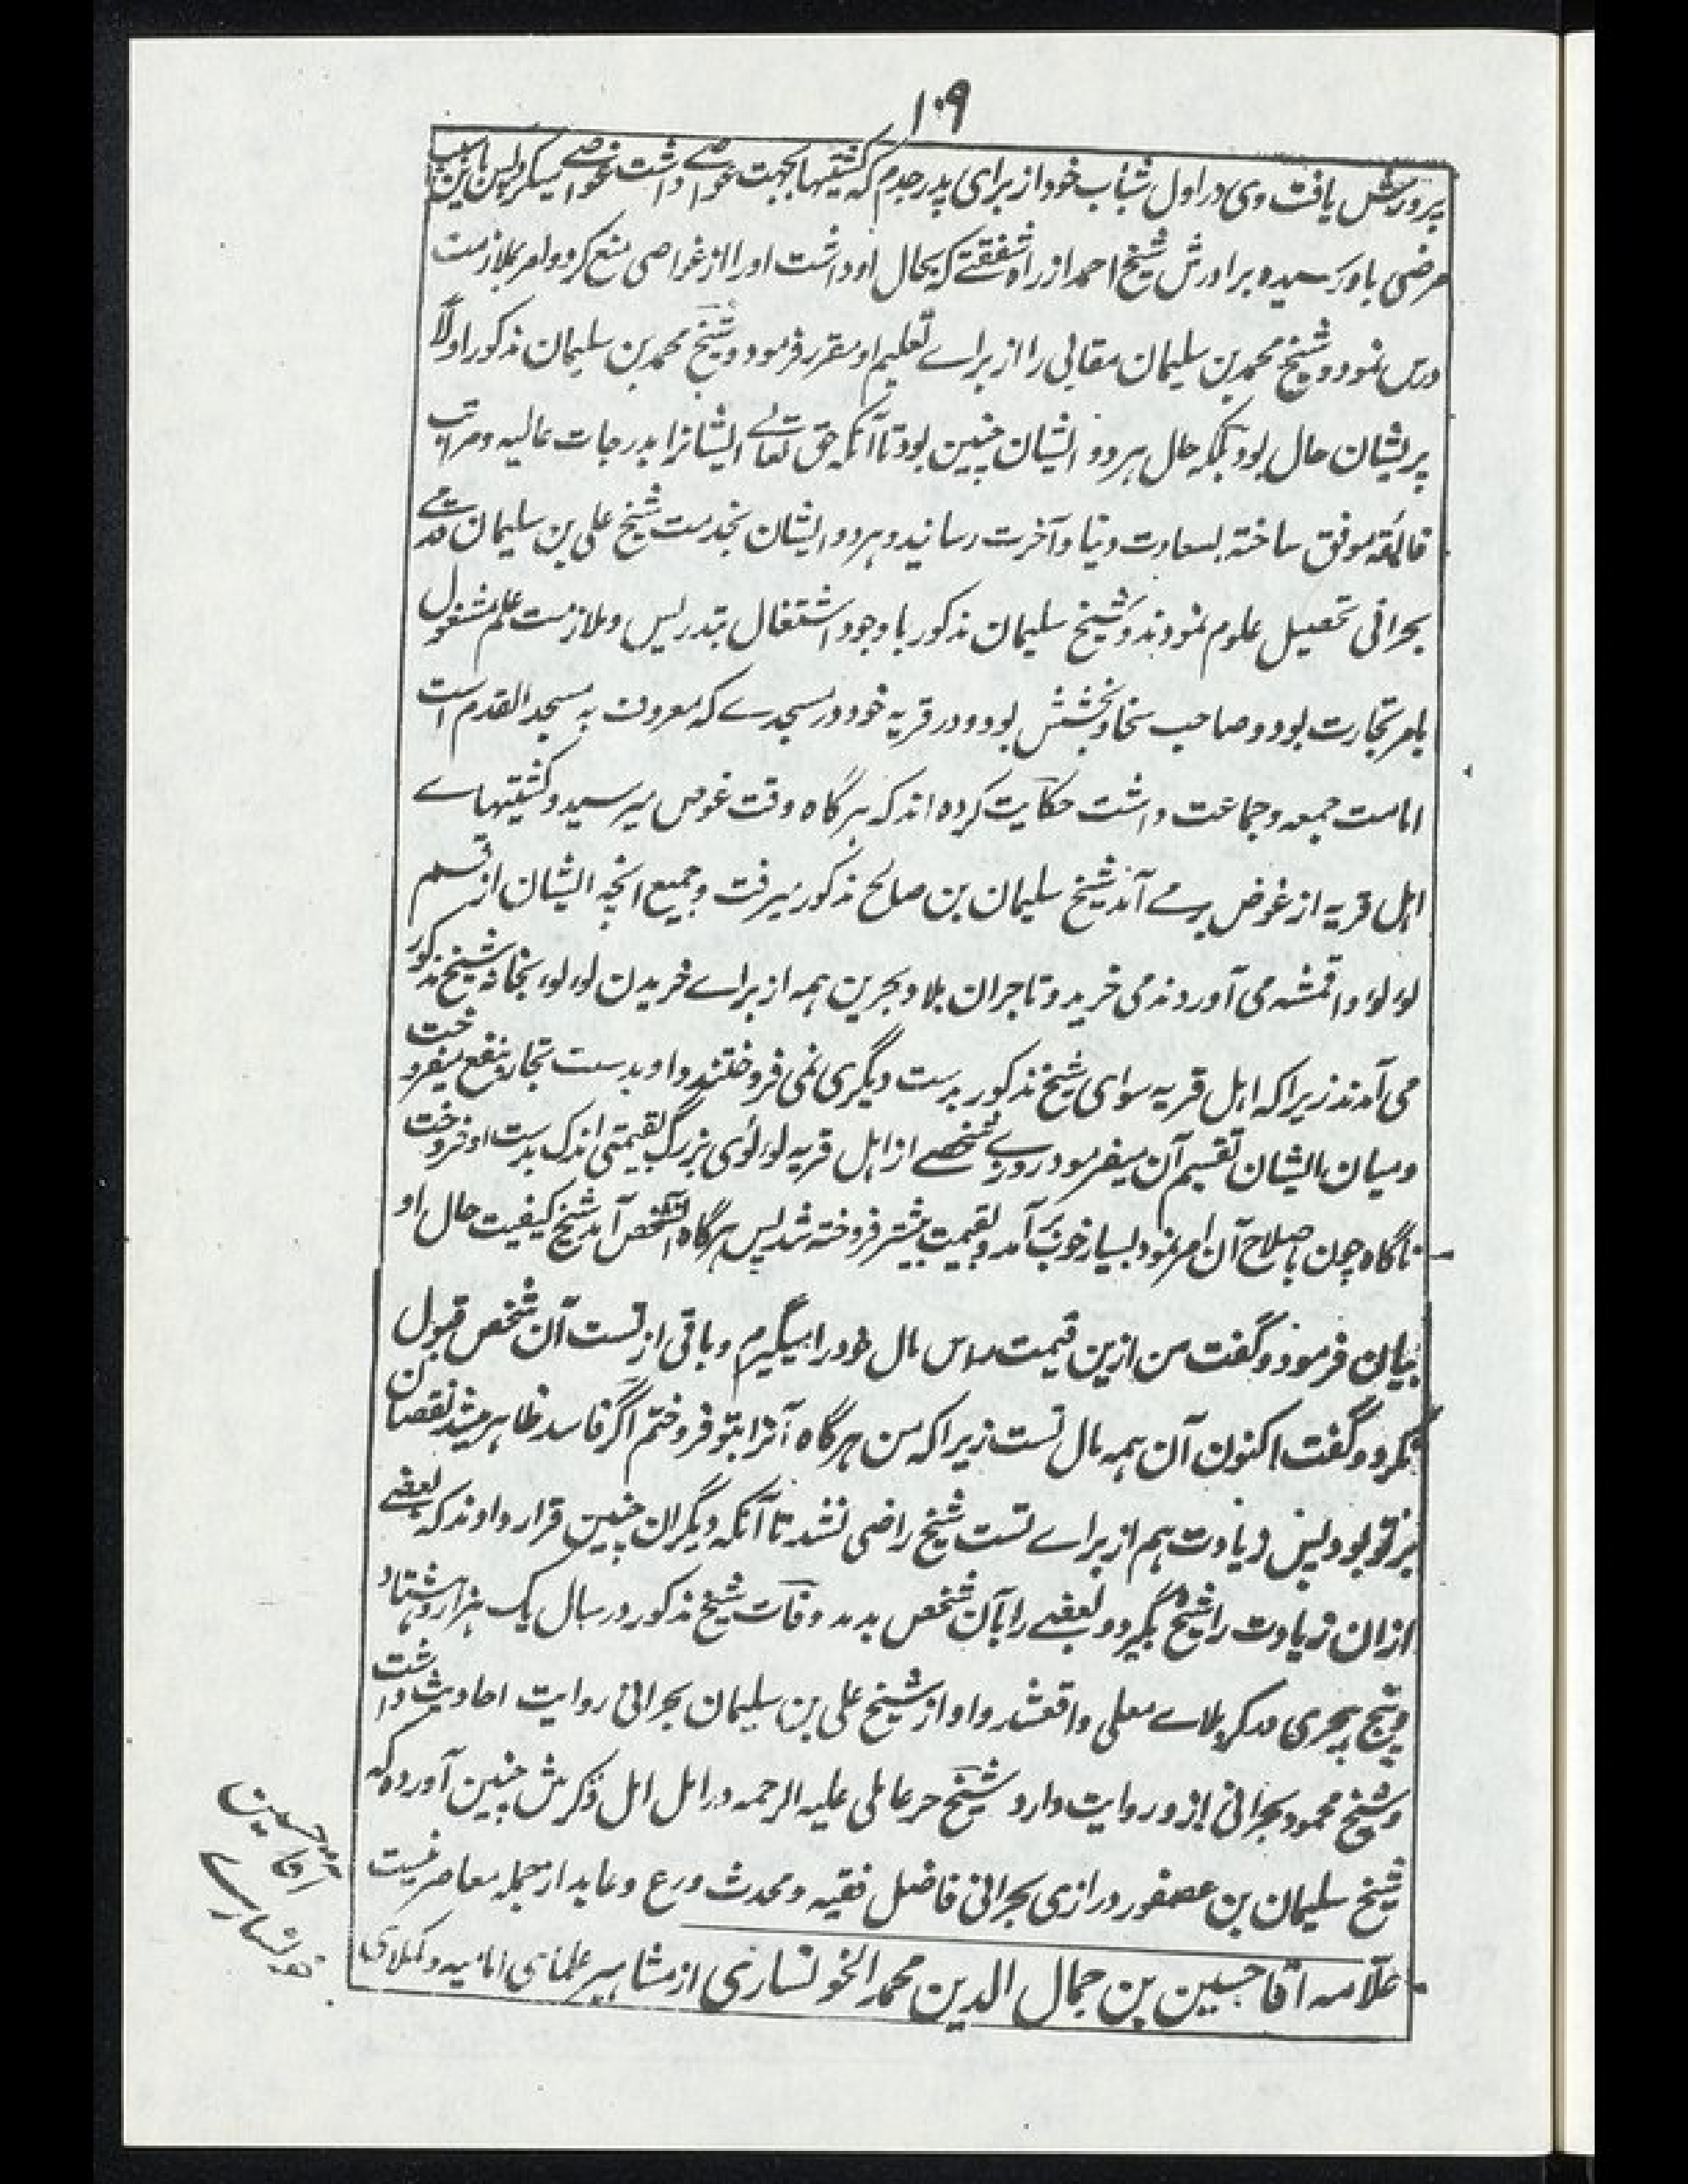 ۱۰۹
پرورش یافت وی در اول شباب خود از برای پدر جدم که کشتیها بجهت غواصے داشت غواصے میکرد پس باین سبب
مرضی باو رسید و برادرش شیخ احمد از راه شفقتے که بحال او داشت او را از غواصی منع کرد و امر بملازمت
درس نمود و شیخ محمد بن سلیمان مقابی را از براے تعلیم او مقرر فرمود و شیخ محمد بن سلیمان مذکور اولاً
پریشان حال بود بلکه حال هر دو ایشان چنین بود تا آنکه حق تعالے ایشانرا بدرجات عالیه و مراتب
فائقه موفق ساخته بسعادت دنیا و آخرت رسانید و هر دو ایشان بخدمت شیخ علی بن سلیمان قدمے
بحرانی تحصیل علوم نمودند و شیخ سلیمان مذکور با وجود اشتغال بتدریس و ملازمت علم مشغول
بامر تجارت بود و صاحب سخا و بخشش بود و در قریه خود در مسجدے که معروف به مسجد القدم است
امامت جمعه و جماعت داشت حکایت کرده اند که هرگاه وقت غوص میرسید و کشتیهاے
اهل قریه از غوض برمے آمد شیخ سلیمان بن صالح مذکور میرفت و جمیع انچه ایشان از قسم
لوءلوء و اقمشه می آوردند می خرید و تاجران بلاد بحرین همه از براے خریدن لوءلوء بخانه شیخ مذکور
می آمدند زیرا که اهل قریه سوای شیخ مذکور بدست دیگری نمی فروختند و او بدست تجار بنفع میفروخت
و میان ایشان تقسیم آن میفرمود روزے شخصے از اهل قریه لوءلوئی بزرگ بقیمتی اندک بدست او فروخت
ناگاه چون باصلاح آن امر نمود بسیار خوب برآمد و بقیمت بیشتر فروخته شد پس هرگاه آنشخص آمد شیخ کیفیت حال او
بیان فرمود و گفت من ازین قیمت راس مال خود را میگیرم و باقی از تست آن شخص قبول
نکرد و گفت اکنون آن همه مال تست زیرا که من هرگاه آنرا بتو فروختم اگر فاسد ظاهر میشد نقصان
بر تو بود پس زیادت هم از براے تست شیخ راضی نشد تا آنکه دیگران چنین قرار دادند که بعضے
ازان زیادت را شیخ بگیرد و بعضے را بآن شخص بدهد وفات شیخ مذکور در سال یک هزار و هشتاد
و پنج هجری در کربلاے معلی واقعشد و او از شیخ علی بن سلیمان بحرانی روایت احادیث داشت
و شیخ محمود بحرانی ازو روایت دارد شیخ حر عاملی علیه الرحمه در امل امل ذکرش چنین آورده که
شیخ سلیمان بن عصفور درازی بحرانی فاضل فقیه و محدث ورع و عابد از جمله معاصرنیست
علامه آقا حسین بن جمال الدین محمد الخونساری از مشاهیر علمای امامیه و کملای
آقا حسین
خونساری